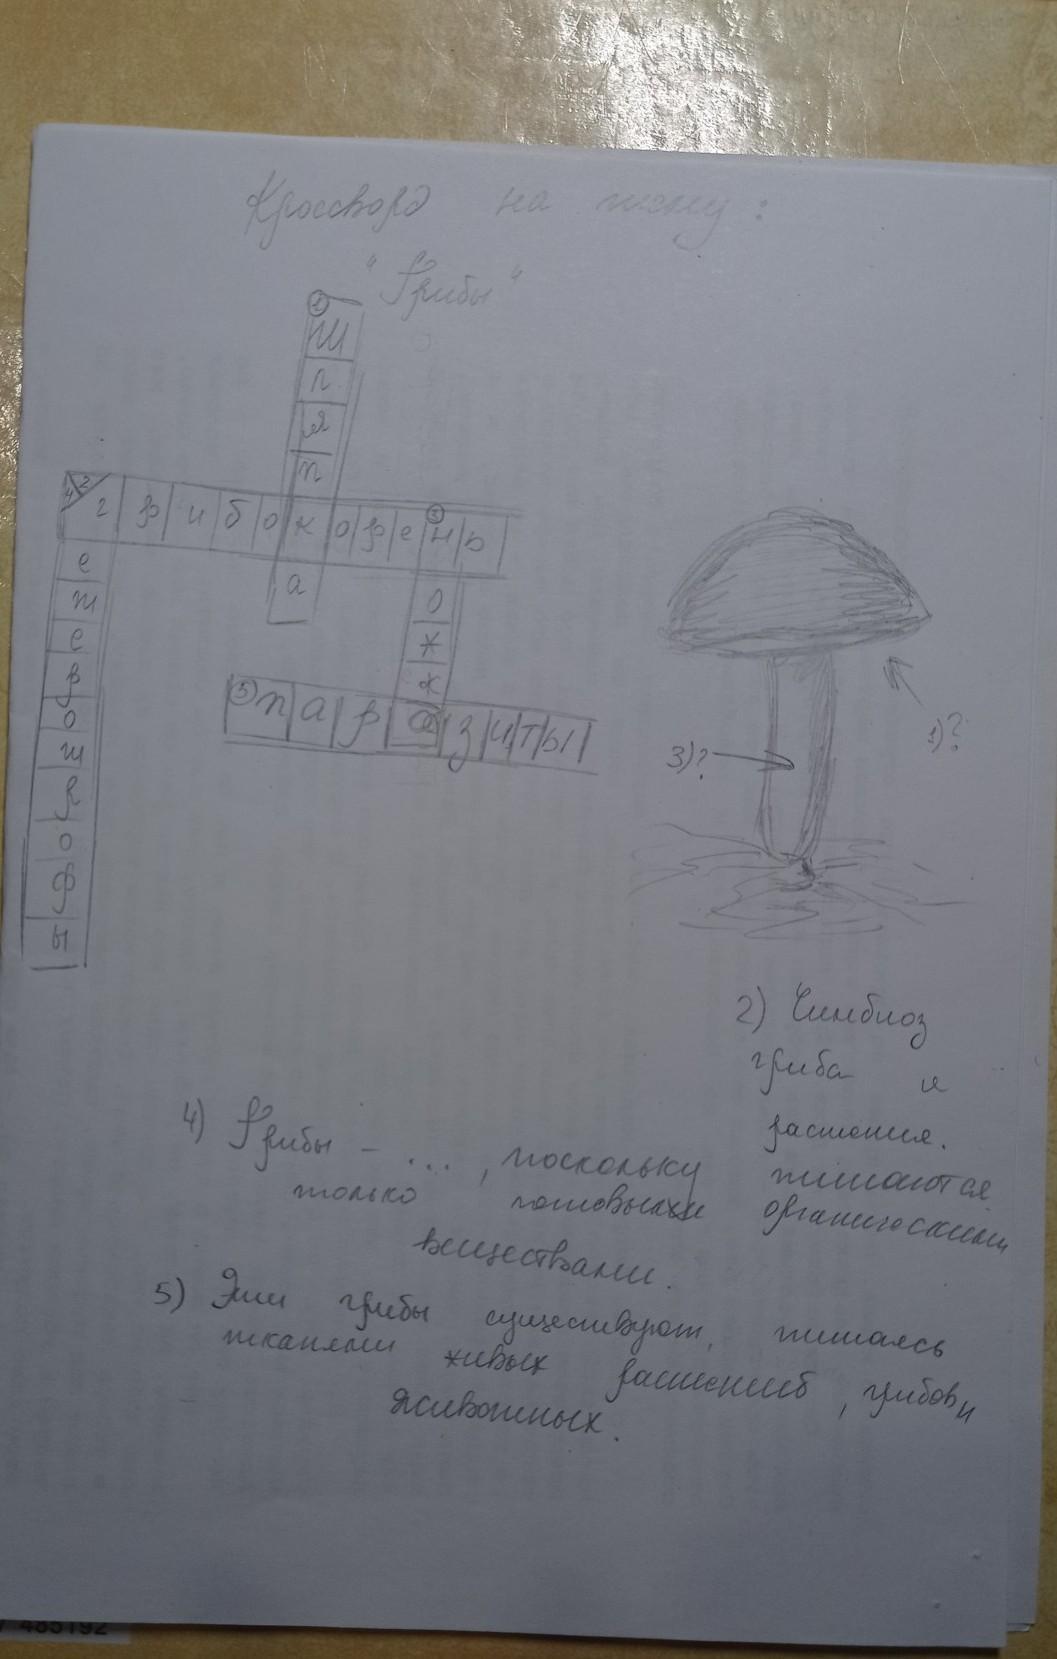 Кроссворд на тему:
"Грибы"
1
ш
л
я
п
4 2 г р и б о к о р е 3 н ь
а
е
т
е
р
о
т
р
о
ф
ы
о
ж
к
5 п а р а з и т ы
1)?
3)?
2) Симбиоз
гриба и
растения.
4) Грибы - ..., поскольку питаются
только готовыми органическими
веществами.
5) Эти грибы существуют, питаясь
тканями живых растений, грибов и
животных.
485192